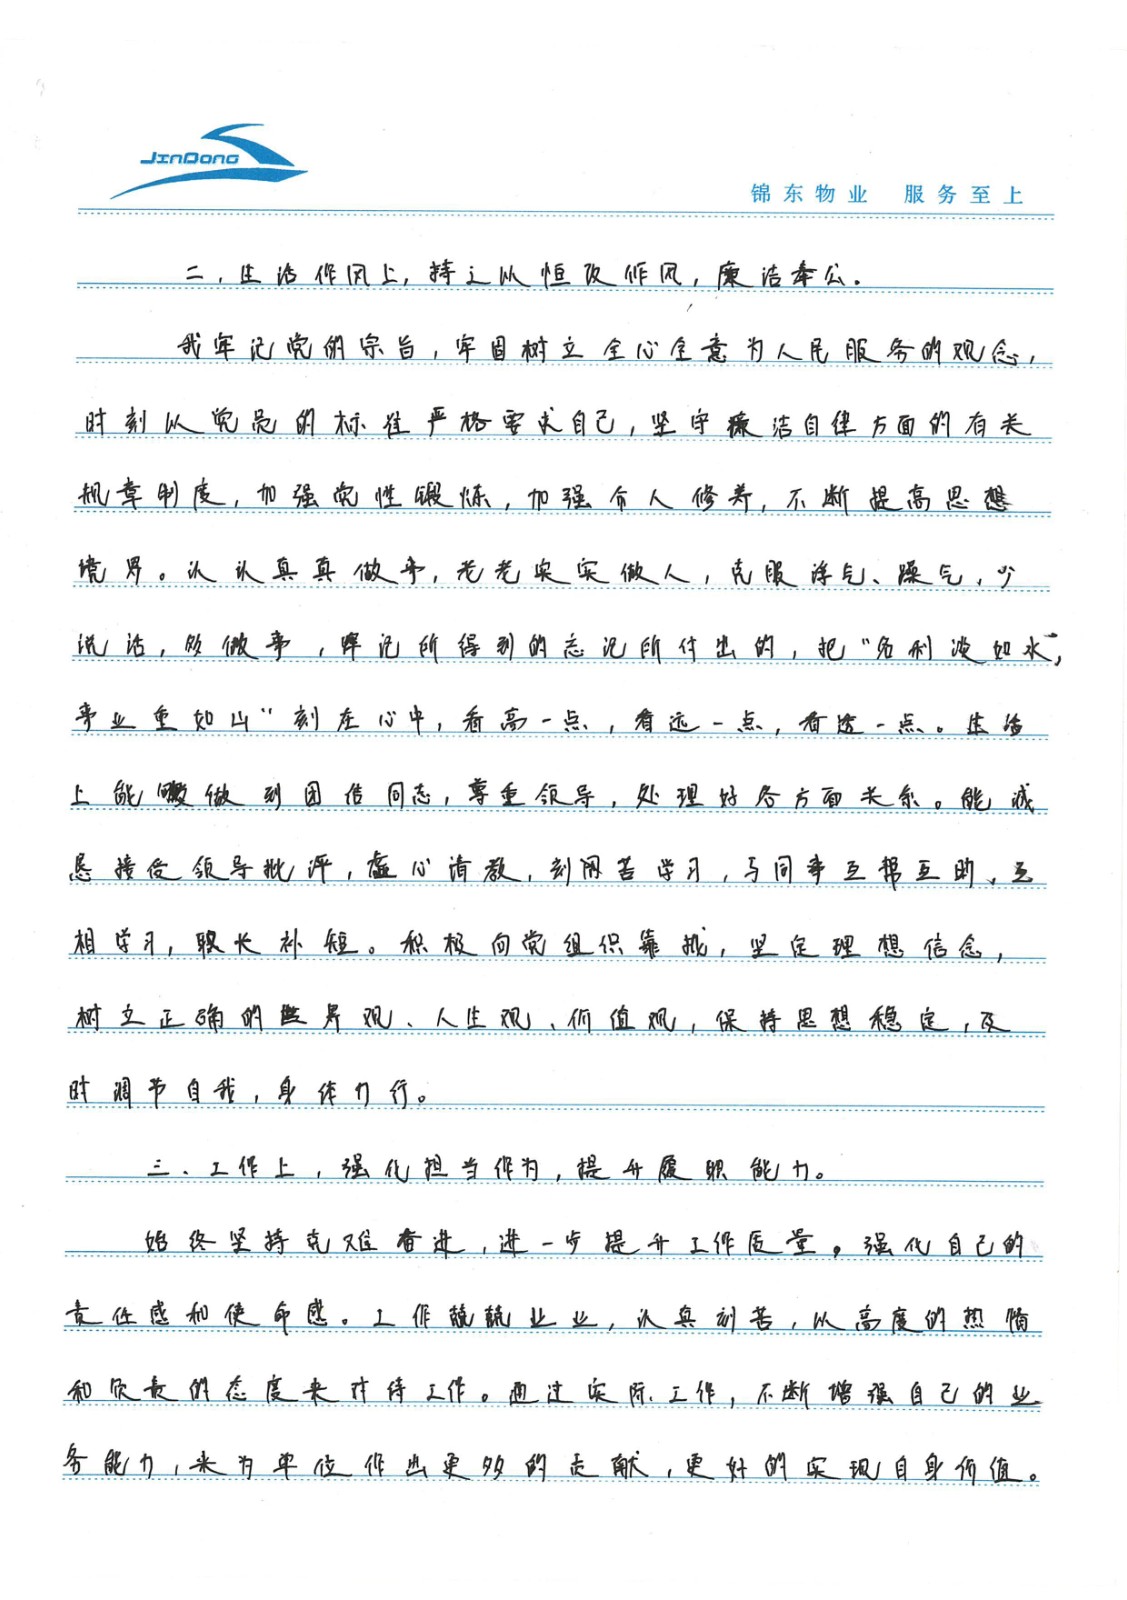 JinDong
锦东物业 服务至上
二，生活作风上，持之以恒改作风，廉洁奉公。
我牢记党的宗旨，牢固树立全心全意为人民服务的观念，
时刻从党员的标准严格要求自己，坚守廉洁自律方面的有关
规章制度，加强党性锻炼，加强个人修养，不断提高思想
境界。认认真真做事，老老实实做人，克服浮气、躁气，少
说话，多做事，牢记所得到的忘记所付出的，把“名利淡如水，
事业重如山”刻在心中，看高一点，看远一点，看透一点。生活
上能做到团结同志，尊重领导，处理好各方面关系。能诚
恳接受领导批评，虚心请教，刻苦学习，与同事互帮互助、互
相学习，取长补短。积极向党组织靠拢，坚定理想信念，
树立正确的世界观、人生观、价值观，保持思想稳定，及
时调节自我，身体力行。
三、工作上，强化担当作为，提升履职能力。
始终坚持克难奋进，进一步提升工作质量。强化自己的
责任感和使命感。工作兢兢业业，认真刻苦，以高度的热情
和负责的态度来对待工作。通过实际工作，不断增强自己的业
务能力，来为单位作出更多的贡献，更好的实现自身价值。